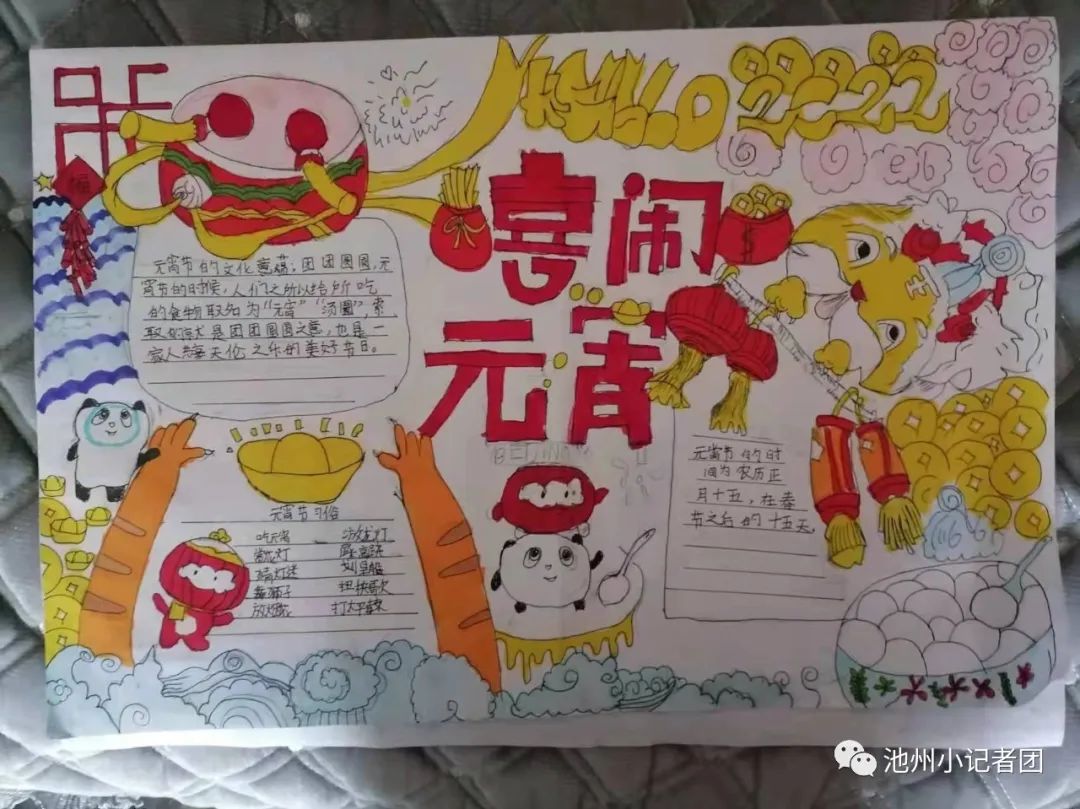 HELLO 2022
喜闹
元宵
福
元宵节的文化意蕴,团团圆圆,元
宵节的时候,人们之所以给所吃
的食物取名为“元宵”“汤圆”索
取的就是团团圆圆之意,也是一
家人共享天伦之乐的美好节日。
王
BEIJING
元宵节的时
间为农历正
月十五,在春
节之后的十五天。
元宵节习俗
吃元宵
赏花灯 踩高跷
猜灯迷 划旱船
舞狮子 扭秧歌
放烟花 打太平鼓
池州小记者团